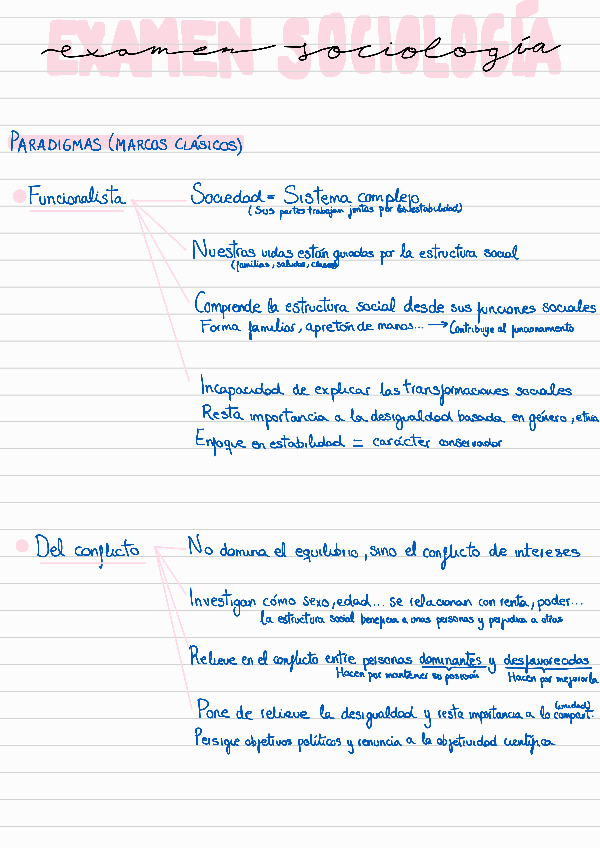 EXAMEN SOCIOLOGÍA
examen sociología
PARADIGMAS (MARCOS CLÁSICOS)
Funcionalista
Sociedad = Sistema complejo
(Sus partes trabajan juntas por la estabilidad)
Nuestras vidas están guiadas por la estructura social
(familias, saludos, clases)
Comprende la estructura social desde sus funciones sociales
Forma familiar, apretón de manos... → Contribuye al funcionamiento
Incapacidad de explicar las transformaciones sociales
Resta importancia a la desigualdad basada en género, etnia
Enfoque en estabilidad = carácter conservador
Del conflicto
No domina el equilibrio, sino el conflicto de intereses
Investigan cómo sexo, edad... se relacionan con renta, poder...
la estructura social beneficia a unas personas y perjudica a otras
Relieve en el conflicto entre personas dominantes y desfavorecidas
Hacen por mantener su posición Hacen por mejorarla
Pone de relieve la desigualdad y resta importancia a lo compart.
(unidad)
Persigue objetivos políticos y renuncia a la objetividad científica